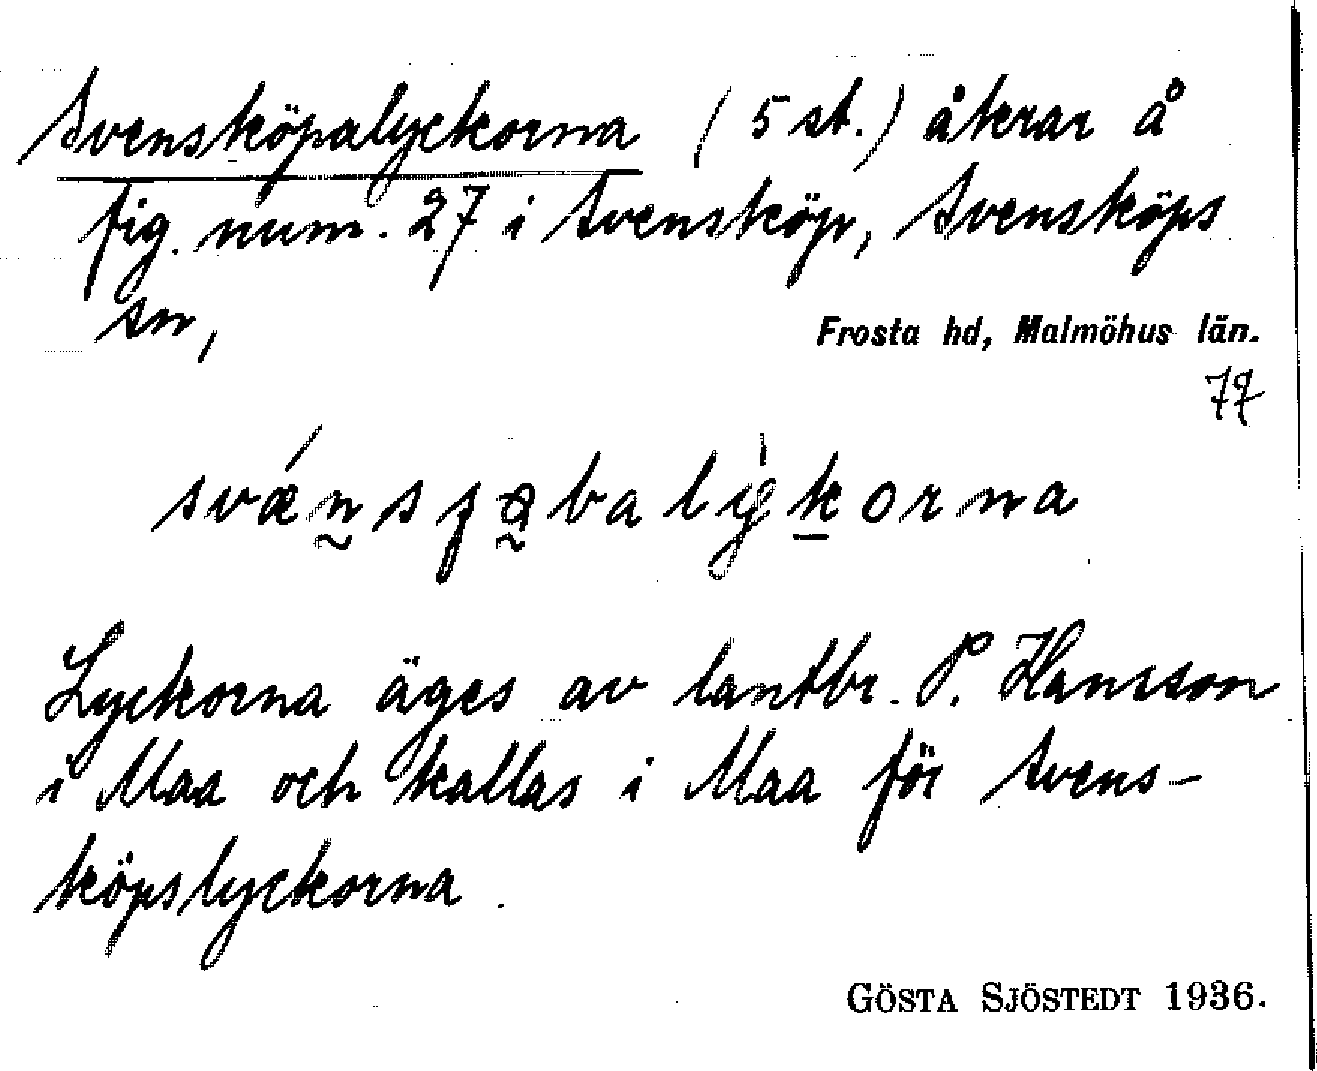 Svensköpalyckorna (5 st.) åkrar å
fig. num. 27 i Svensköp, Svensköps
sn,
Frosta hd, Malmöhus län.
77
Lyckorna äges av lantbr. P. Hansson
i Maa och kallas i Maa för Svens-
köpslyckorna.
GÖSTA SJÖSTEDT 1936.